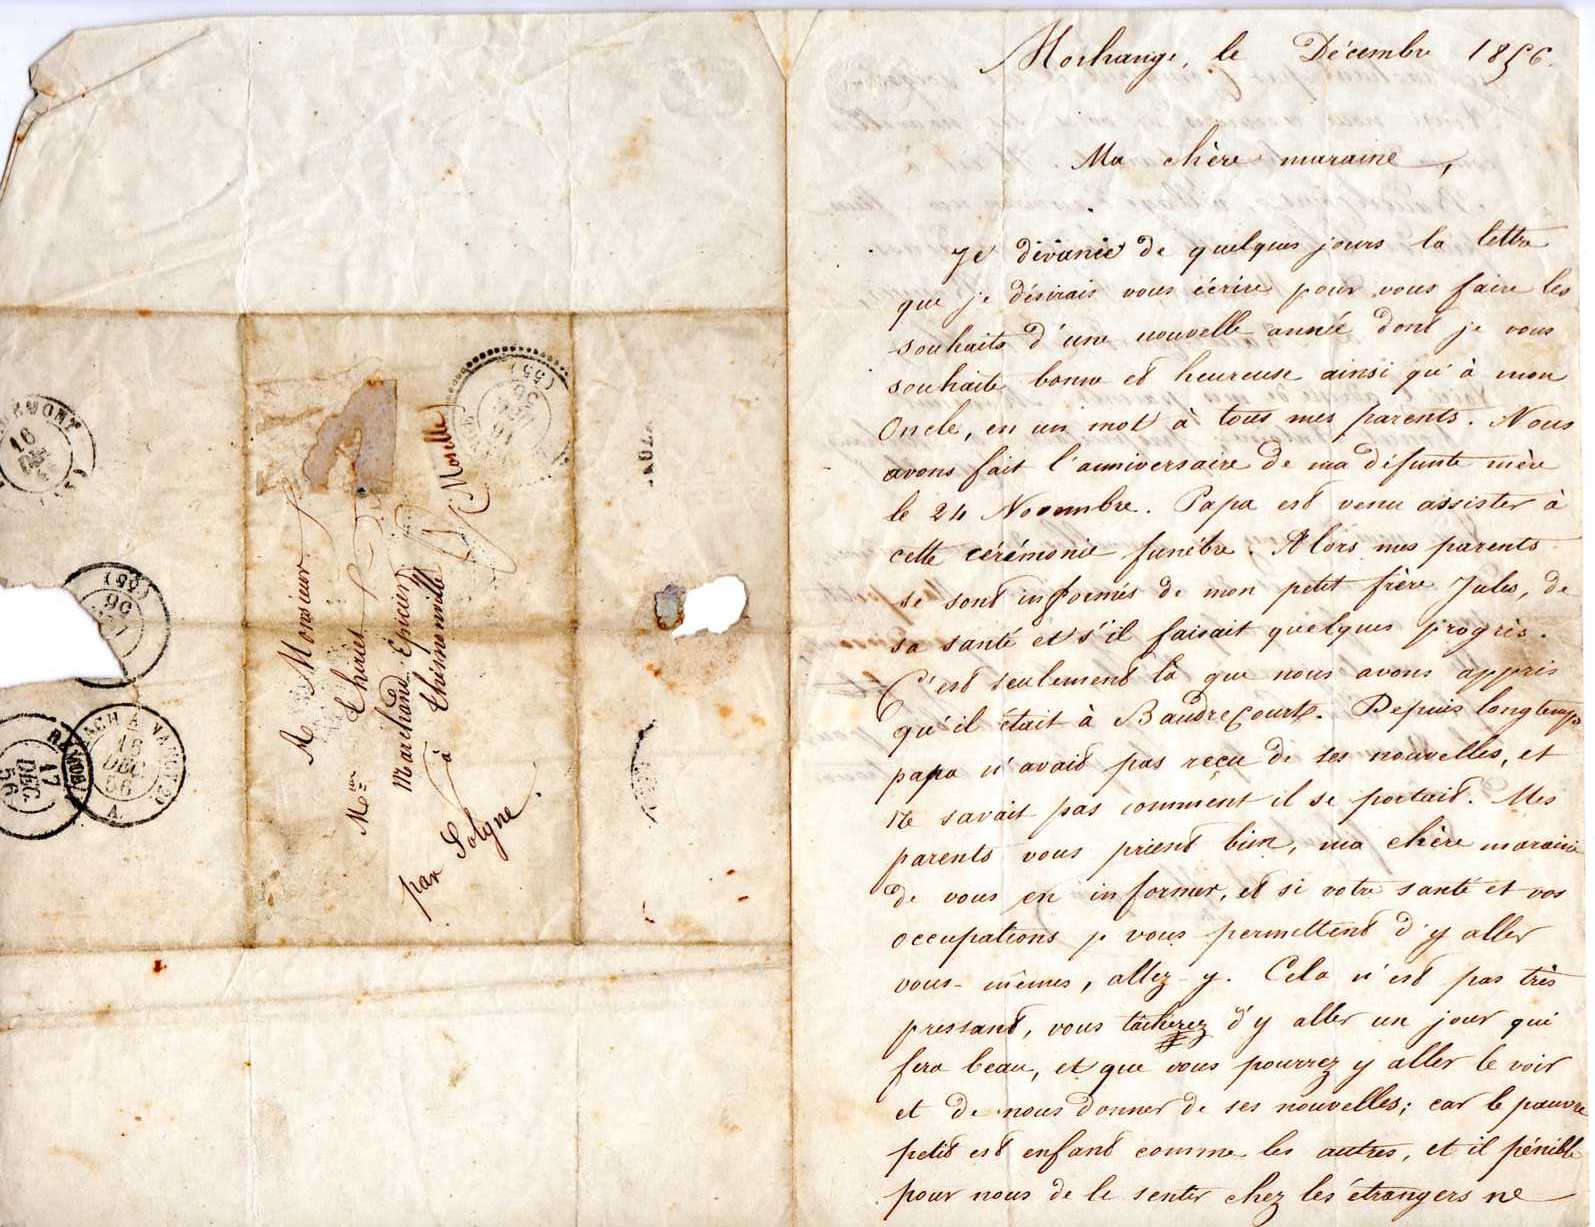 Morhange, le Décembre 1856.
Ma chère maraine,
Je devance de quelques jours la lettre
que je désirais vous écrire pour vous faire les
souhaits d'une nouvelle année dont je vous
souhaite bonne et heureuse ainsi qu'à mon
Oncle, en un mot à tous mes parents. Nous
avons fait l'anniversaire de ma défunte mère
le 24 Novembre. Papa est venu assister à
cette cérémonie funèbre. Alors mes parents
se sont informés de mon petit frère Jules, de
sa santé et s'il faisait quelques progrès.
C'est seulement là que nous avons appris
qu'il était à Baudrecourt. Depuis longtemps
papa n'avait pas reçu de ses nouvelles, et
ne savait pas comment il se portait. Mes
parents vous prient bien, ma chère maraine
de vous en informer, et si votre santé et vos
occupations vous permettent d'y aller
vous-mêmes, allez-y. Cela n'est pas très
pressant, vous tâcherez d'y aller un jour qui
fera beau, et que vous pourrez y aller le voir
et de nous donner de ses nouvelles; car le pauvre
petit est enfant comme les autres, et il pénible
pour nous de le sentir chez les étrangers ne
A Monsieur
Marchand Épicier
à Thimonville
(Moselle)
par Solgne.
16
DEC
(55)
16
DEC.
56
17
DEC.
56
(55)